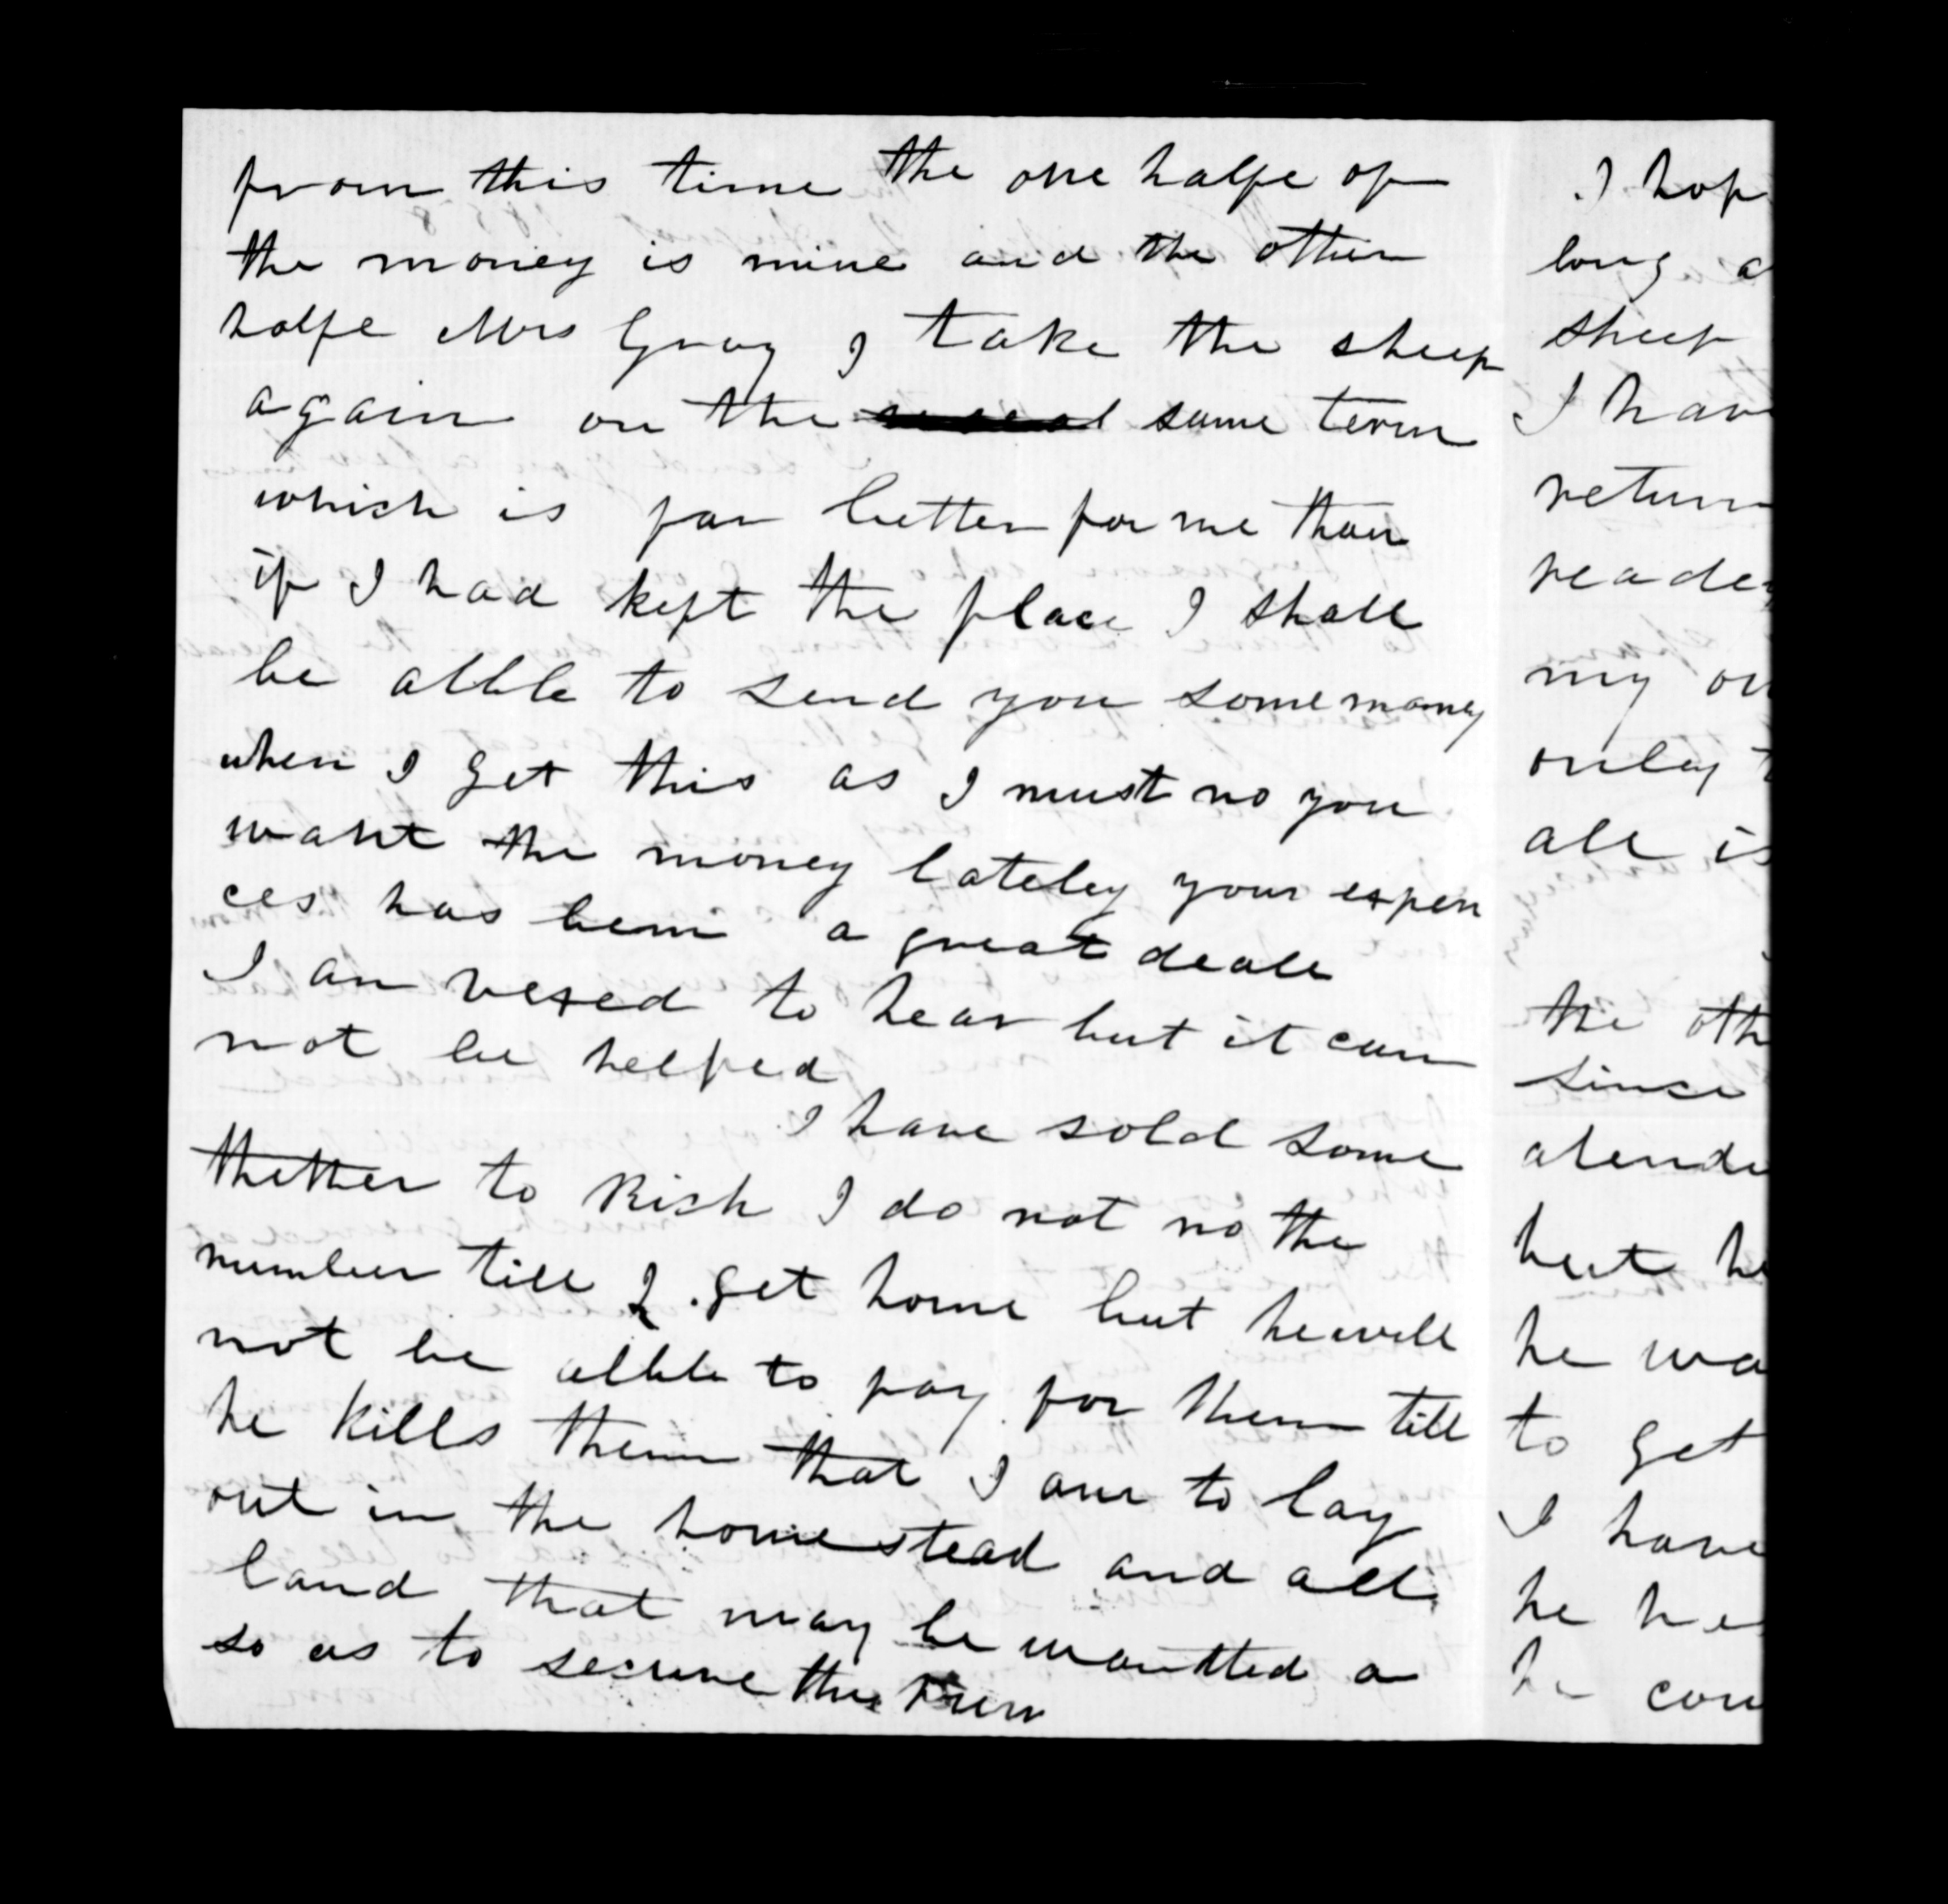 from this time the one halfe of
the money is mine and the other
halfe Mrs Gray I take the sheep
again on the same term
which is far better for me than
if I had kept the place I shall
be allble to send you some money
when I get this as I must no you
want the money lateley your expen
ces has bein a great deall
I am vexed to hear but it can
not be helped
I have sold some
thether to Rich I do not no the
number till I get home but he will
not be allble to pay for them till
he kills them that I am to lay
out in the homestead and all
land that may be wantted a
so as to secure the run
I hop
long a
sheep
I hav
return
reade
my on
onley t
all is
the oth
since
atende
but he
he wa
to get
I have
he he
he cou